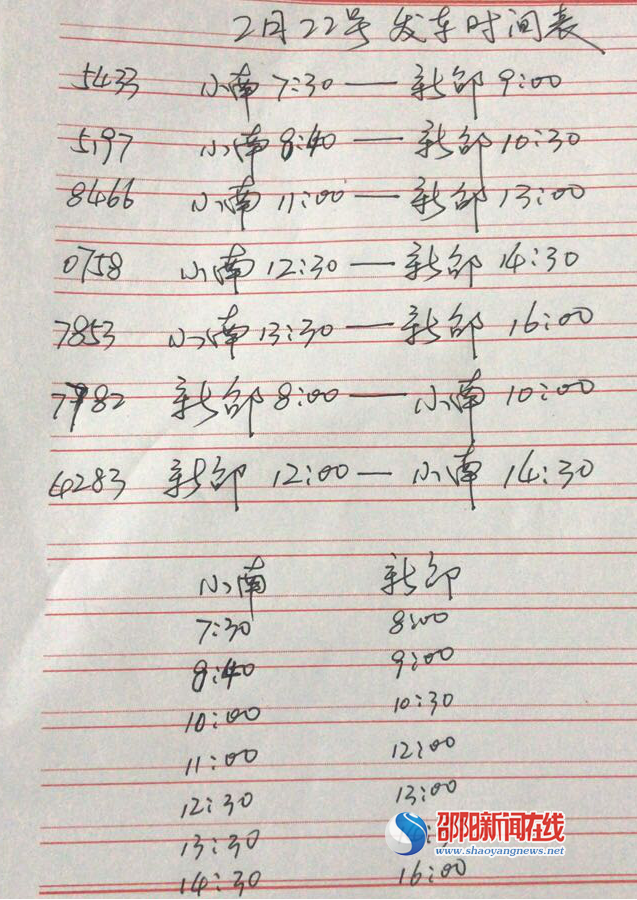 2月22号发车时间表
5433 小南 7:30 — 新邵 9:00
5197 小南 8:40 — 新邵 10:30
8466 小南 11:00 — 新邵 13:00
0758 小南 12:30 — 新邵 14:30
7853 小南 13:30 — 新邵 16:00
7982 新邵 8:00 — 小南 10:00
4283 新邵 12:00 — 小南 14:30
小南 新邵
7:30 8:00
8:40 9:00
10:00 10:30
11:00 12:00
12:30 13:00
13:30
14:30 16:00
邵阳新闻在线
www.shaoyangnews.net